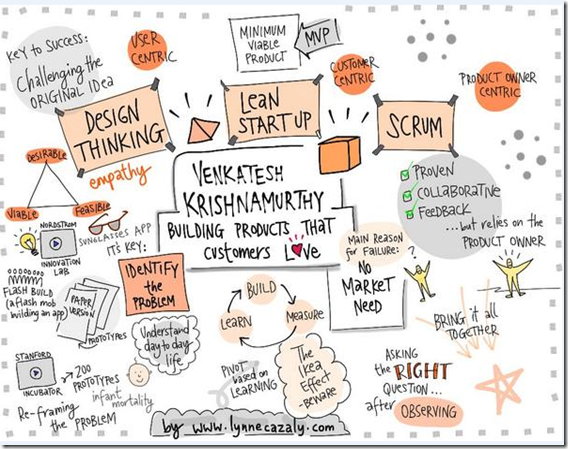 KEY to SUCCESS:
Challenging the
ORIGINAL IDea
USER
CENTRIC
MINIMUM
VIABLE
PRODUCT
MVP
CUSTOMER
CENTRIC
PRODUCT OWNER
CENTRIC
DESIGN
THINKING
empathy
LEAN
START UP
SCRUM
DesiRABLE
VIABLE
FeasiBLE
VENKATESH
KRISHNAMURTHY
BUILDING PRODUCTS THAT
customers LOVE
PROVEN
COLLABORATIVE
Feedback
...but relies on the
PRODUCT OWNER
NORDSTROM
INNOVATION
LAB
SUNGLASSES APP
IT's KEY:
IDENTIFY
the
PROBLEM
FLASH BUILD
(a flash mob
building an app)
PAPER
VERSION
PROTOTYPES
Understand
day to day
life
BUILD
MEASURE
LEARN
Main Reason
for Failure:
NO
MARKET
NEED
?
BRING it all
TOGETHER
STANFORD
INCUBATOR
200
PROTOTYPES
infant
mortality
Re-framing
the PROBLEM
PIVOT
based on
LEARNING
The
Ikea
Effect
-BEWARE
ASKING
the RIGHT
QUESTION...
after OBSERVING
by www.lynnecazaly.com